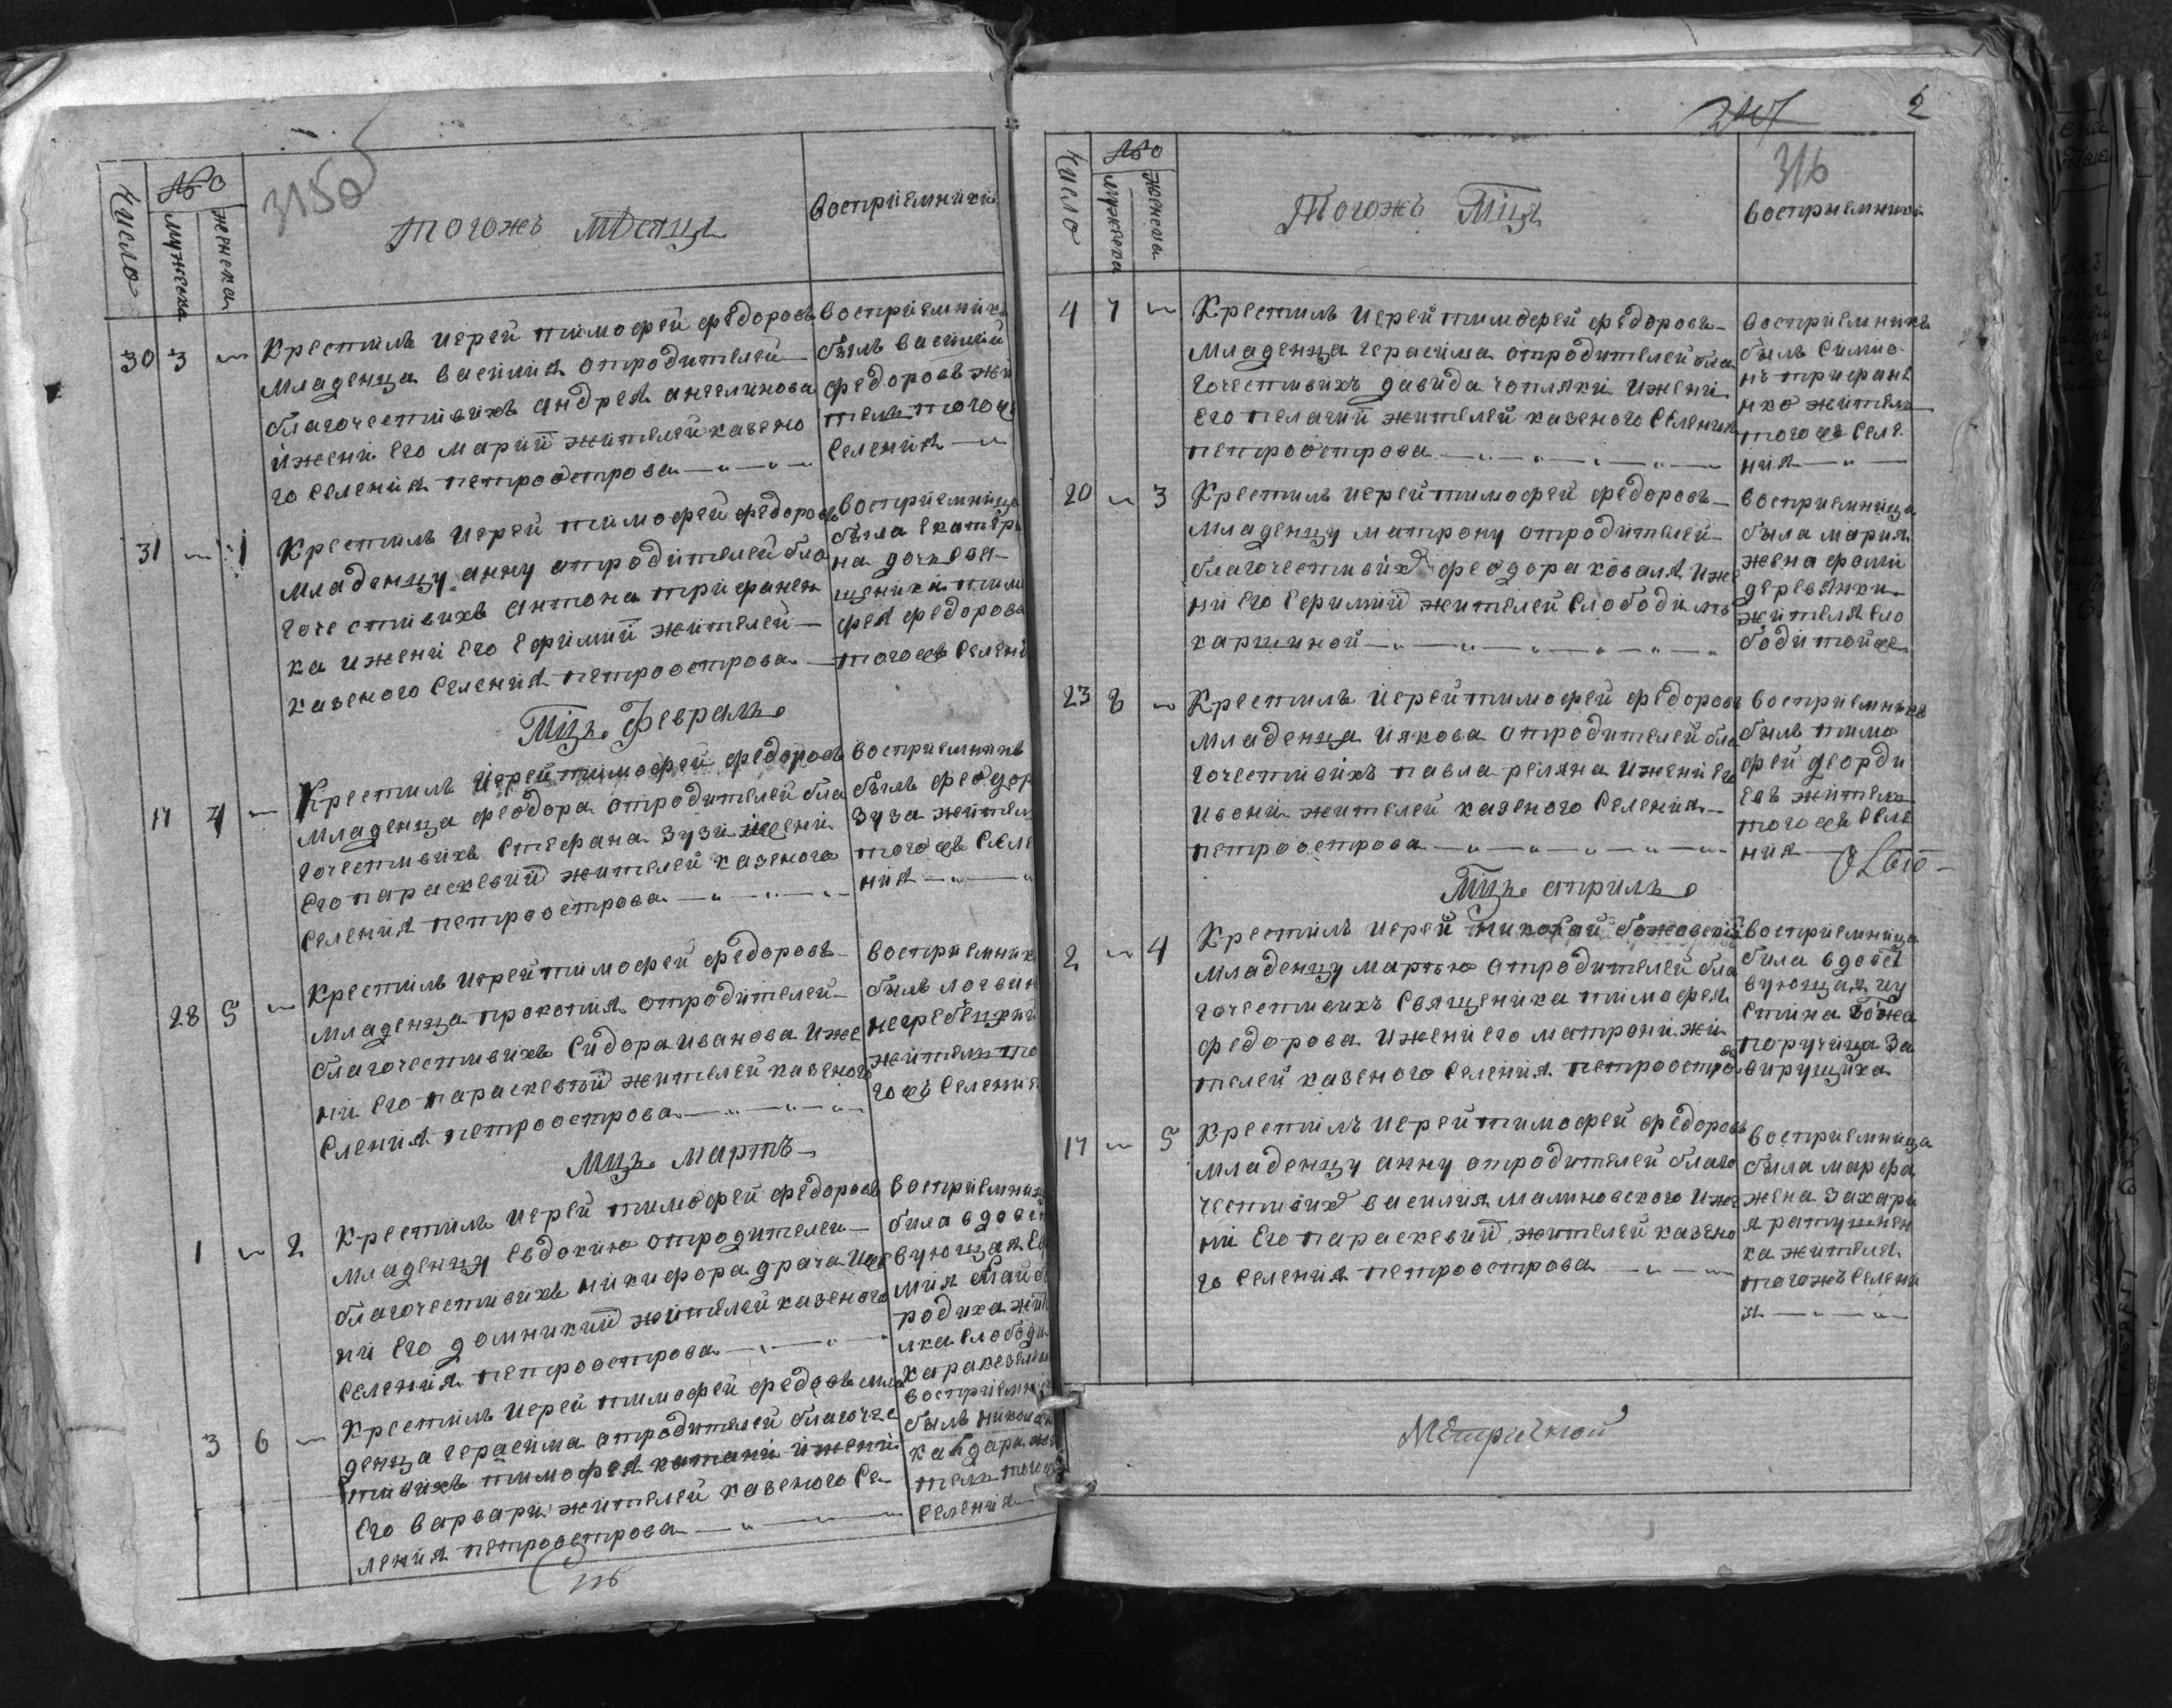 315об
Число
№
мужеска
женска
тогожъ мѣсяца
восприемники
30 3 Крестилъ иерей тимофей федоровъ
младенца василия отродителей
благочестивихъ андрея ангелинова
ижени его марий жителей казено
го селения петроострова
восприемникъ
былъ василий
федоровъ жи
тель тогожъ
селения
31 1 Крестилъ иерей тимофей федоровъ
младенцу анну отродителей бла
гочестивихъ антона трифанен
ка ижени его ефимий жителей
казеного селения петроострова
восприемница
была екатери
на дочь свя
щеника тимо
фея федорова
тогожъ селени
Мцъ февраль
17 4 Крестилъ иерей тимофей федоровъ
младенца феодора отродителей бла
гочестивихъ стефана зузи ижени
его параскевий жителей казеного
селения петроострова
восприемникъ
былъ феодор
зуза жител
тогожъ селе
ния
28 5 Крестилъ иерей тимофей федоровъ
младенца прокопия отродителей
благочестивихъ сидора иванова иже
ни его параскевый жителей казеного
сления петроострова
восприемник
былъ логвин
негребецкий
житель то
гожъ селения
мцъ мартъ
1 2 Крестилъ иерей тимофей федоровъ
младенцу евдокию отродителей
благочестивихъ никифора драча иже
ни его домникий жителей казеного
селения петроострова
восприемница
била вдовст
вующая ев
мия
родиха жит
лка слободи
3 6 Крестилъ иерей тимофей федоовъ мла
денца герасима отродителей благоче
стивихъ тимофея катани ижени
его варвари жителей казеного се
ления петроострова
восприемник
былъ николай
кайдара жи
тель тогожъ
селения
316
2
Число
№
мужеска
женска
Тогожъ Мца
316
восприемники
4 7 Крестилъ иерей тимофей федоровъ
младенца герасима отродителей бла
гочестивихъ давида чопляки ижени
его пелагий жителей казеного селения
петроострова
восприемникъ
былъ симио
нъ трифане
нко житель
тогожъ селе
ния
20 3 Крестилъ иерей тимофей федоровъ
младенцу матрону отродителей
благочестивихъ феодора коваля иже
ни его ефимий жителей слободи мъ
каршиной
восприемница
была мария
жена фоми
деревянки
жителя сло
боди тойже
23 8 Крестилъ иерей тимофей федоровъ
младенца иякова отродителей бла
гочестивихъ павла реляна ижени его
ивони жителей казеного селения
петроострова
восприемникъ
былъ тимо
фей деорди
евъ житель
тогожъ селе
ния
Мцъ априль
2 4 Крестилъ иерей николай божовский
младенцу марфью отродителей бла
гочестивихъ священика тимофея
федорова ижени его матрони жи
телей казеного селения петроостро
ва
восприемница
била вдовст
вующая иу
стина божа
поручица за
вирущиха
17 5 Крестилъ иерей тимофей федоровъ
младенцу анну отродителей благо
честивихъ василия малиновского иже
ни его параскевий жителей казено
го селения петроострова
восприемница
была марфа
жена захари
я ратушнен
ка жителя
тогожъ селени
я
Метричной